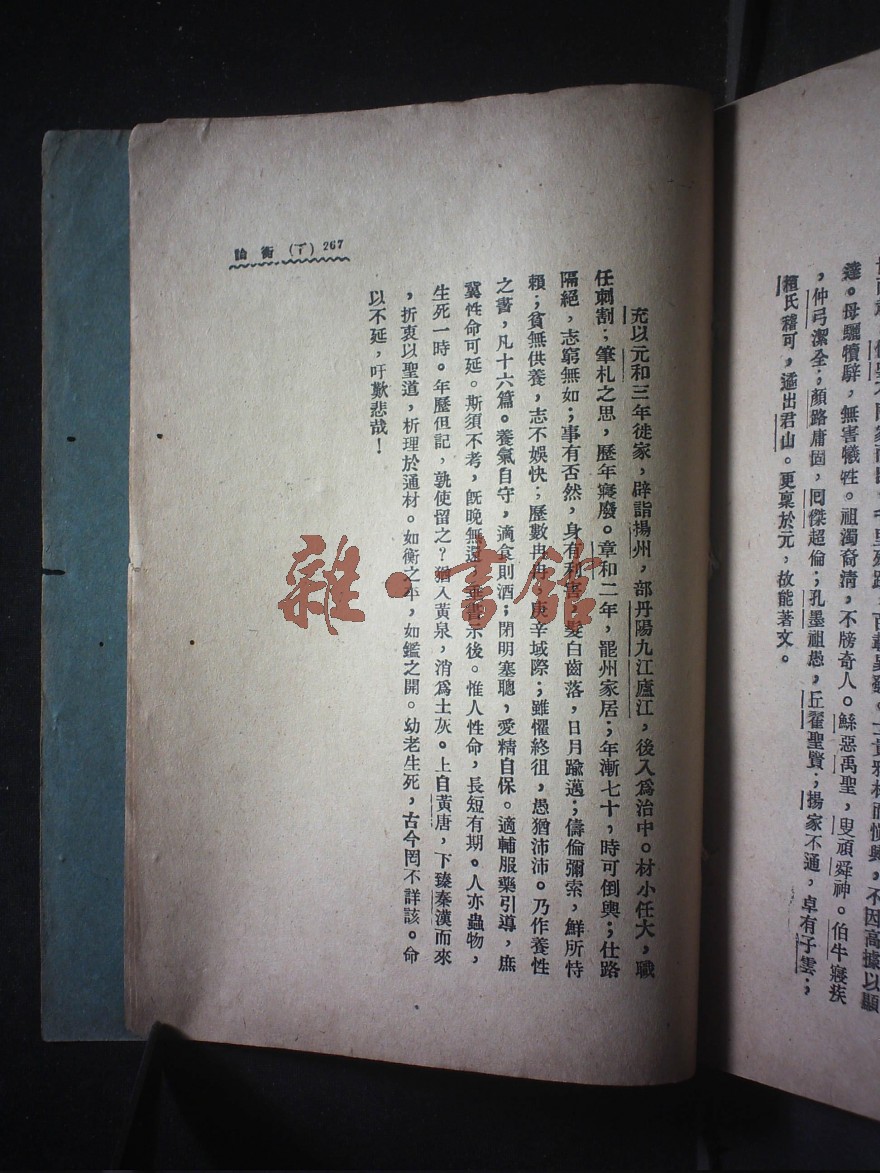 達。母驪犢騂，無害犧牲。祖濁裔清，不牓奇人。鯀惡禹聖，叟頑舜神。伯牛寢疾
，仲弓潔全；顏路庸固，回傑超倫；孔墨祖愚，丘翟聖賢；揚家不通，卓有子雲；
桓氏稽可，遹出君山。更稟於元，故能著文。
充以元和三年徙家，辟詣揚州，部丹陽九江廬江，後入為治中。材小任大，職
任刺割；筆札之思，歷年寢廢。章和二年，罷州家居；年漸七十，時可倒輿；仕路
隔絕，志窮無如；事有否然，身有利害，髮白齒落，日月踰邁；儔倫彌索，鮮所恃
賴；貧無供養，志不娛快；歷數冉冉，庚辛域際；雖懼終徂，愚猶沛沛。乃作養性
之書，凡十六篇。養氣自守，適食則酒；閉明塞聰，愛精自保。適輔服藥引導，庶
冀性命可延。斯須不老，既晚無還，垂書示後。惟人性命，長短有期。人亦蟲物，
生死一時。年歷但記，孰使留之？猶入黃泉，消為土灰。上自黃唐，下臻秦漢而來
，折衷以聖道，析理於通材。如衡之平，如鑑之開。幼老生死，古今罔不詳該。命
以不延，吁歎悲哉！
論衡（下）267
雜·書館